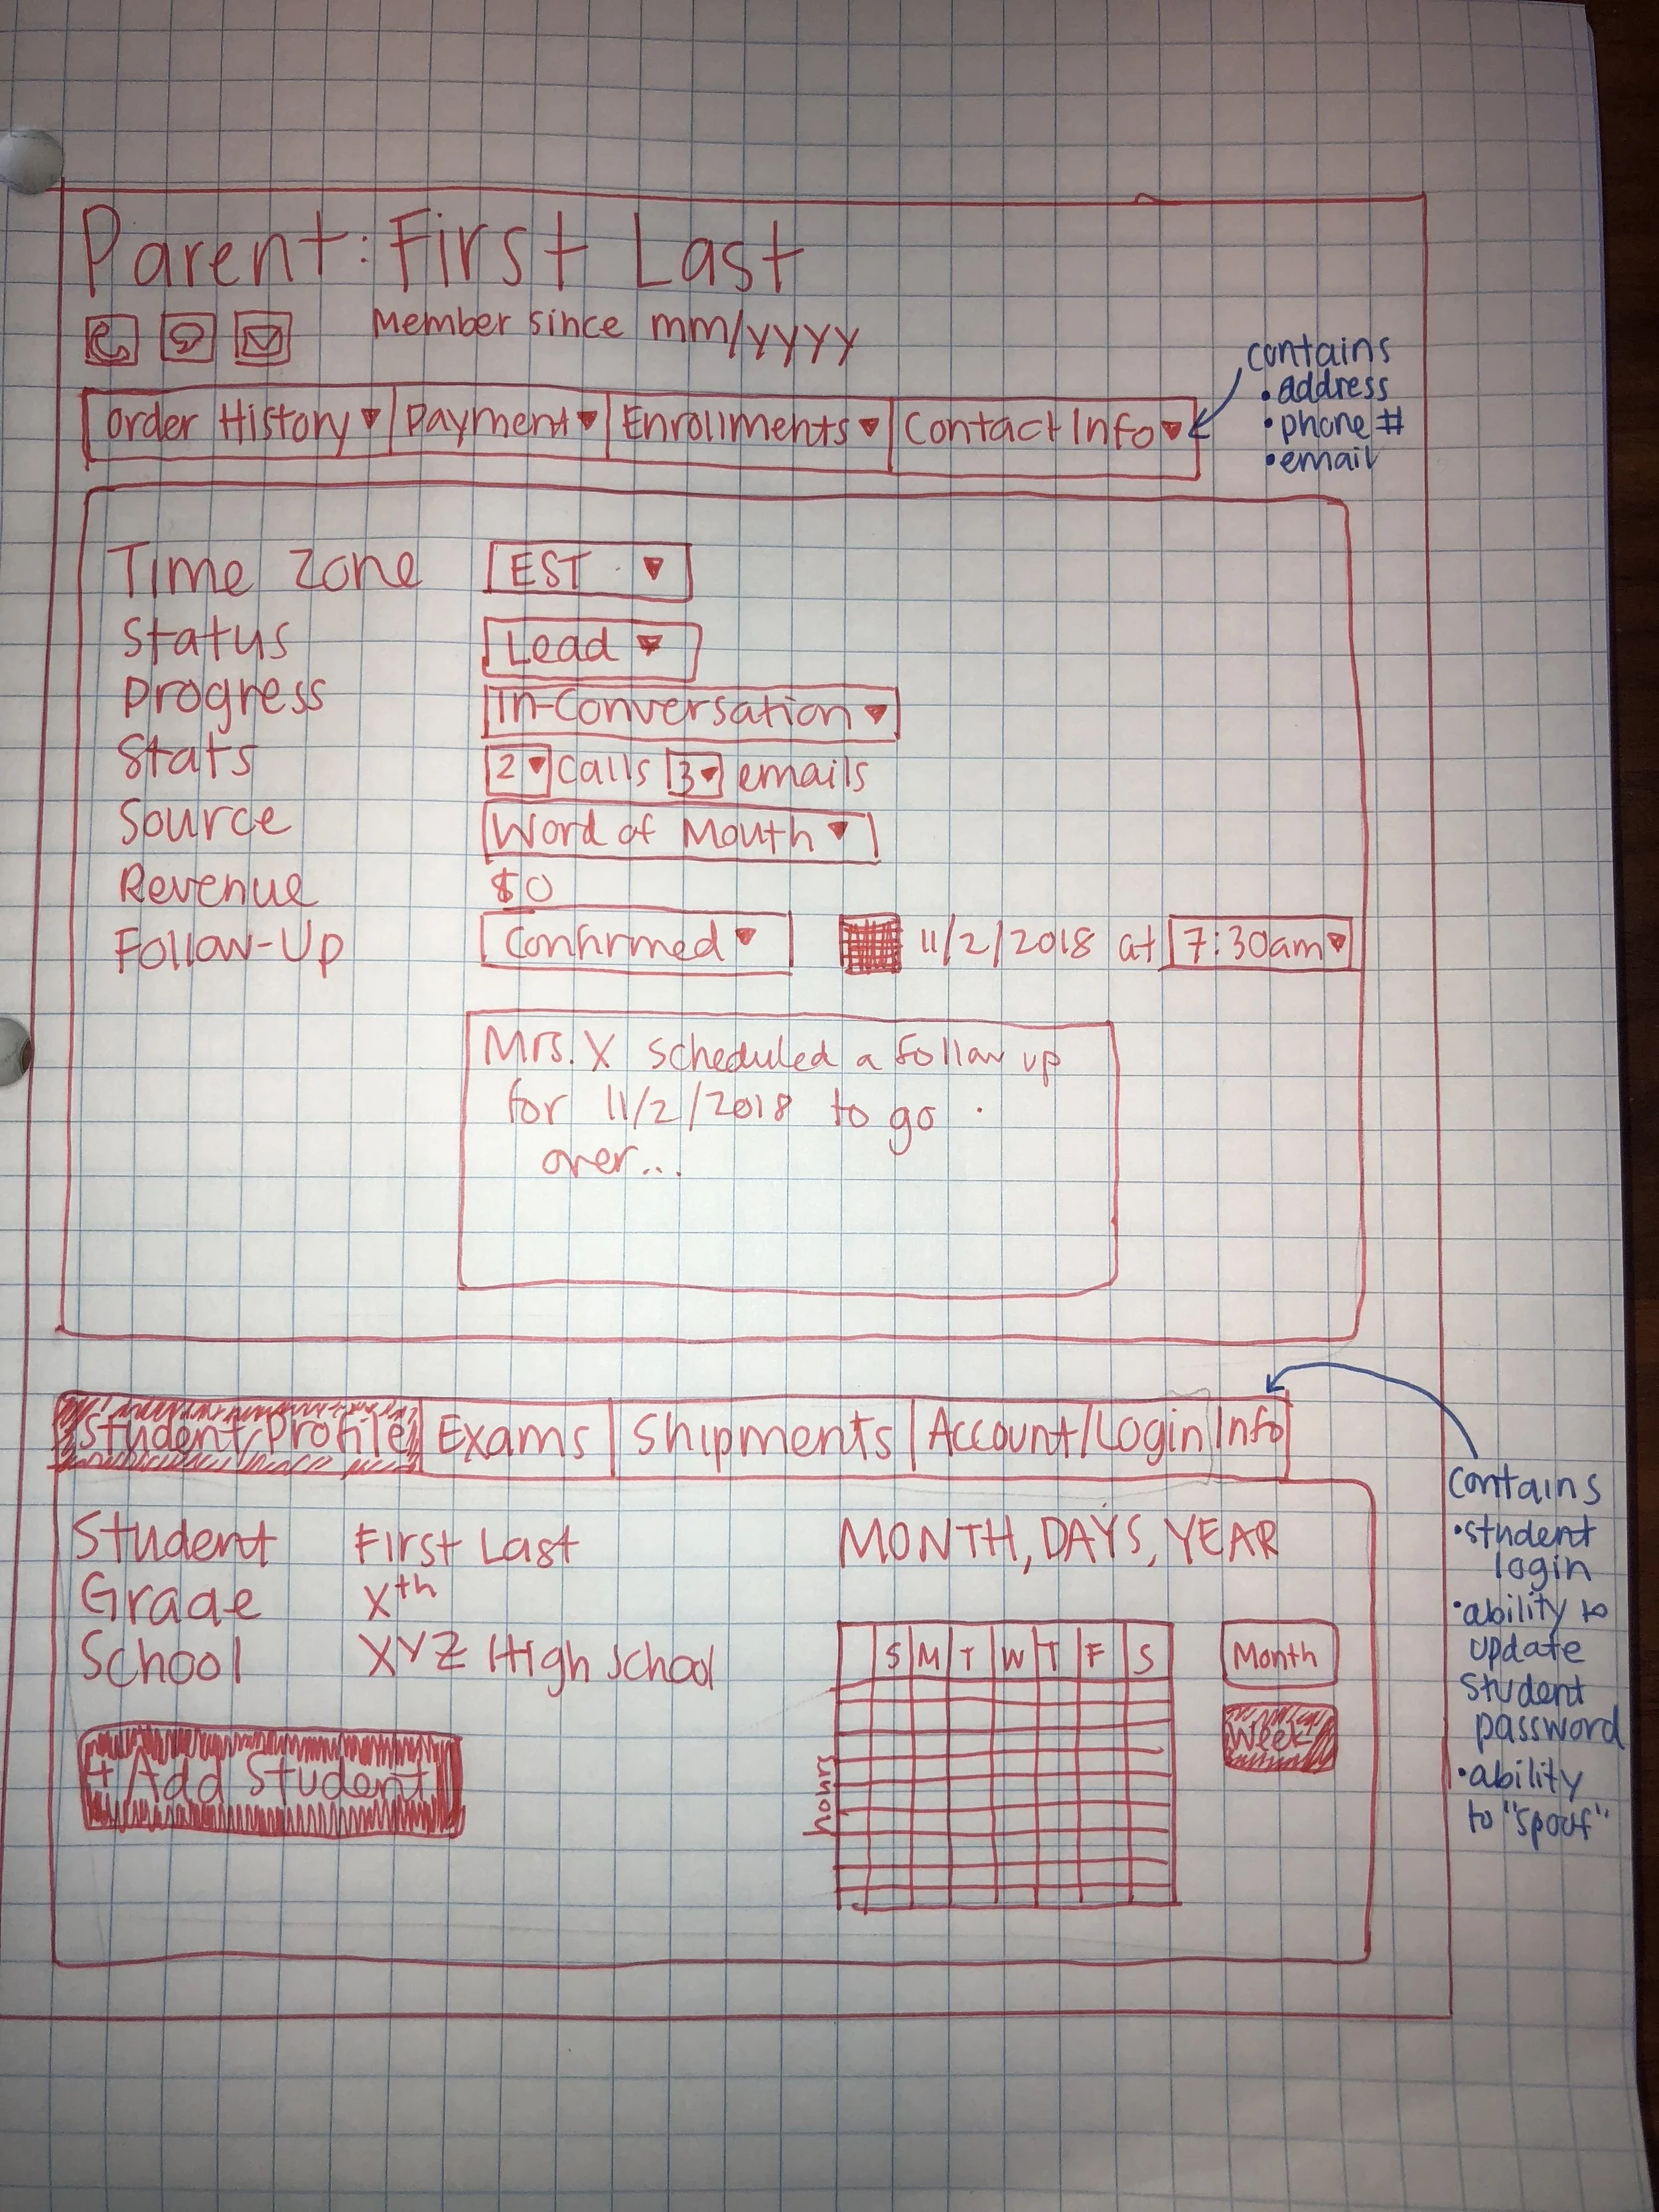 Parent: First Last
Member since mm/yyyy
Order History Payment Enrollments Contact Info
contains
• address
• phone #
• email
Time Zone EST
Status Lead
Progress In-Conversation
Stats 2 calls 3 emails
Source Word of Mouth
Revenue $0
Follow-Up Confirmed 11/2/2018 at 7:30am
Mrs. X scheduled a follow up
for 11/2/2018 to go
over...
Student Profile Exams Shipments Account/Login Info
contains
• student
login
• ability to
update
student
password
• ability
to "spoof"
Student First Last
Grade Xth
School XYZ High School
+ Add Student
MONTH, DAYS, YEAR
S M T W T F S
hours
Month
Week